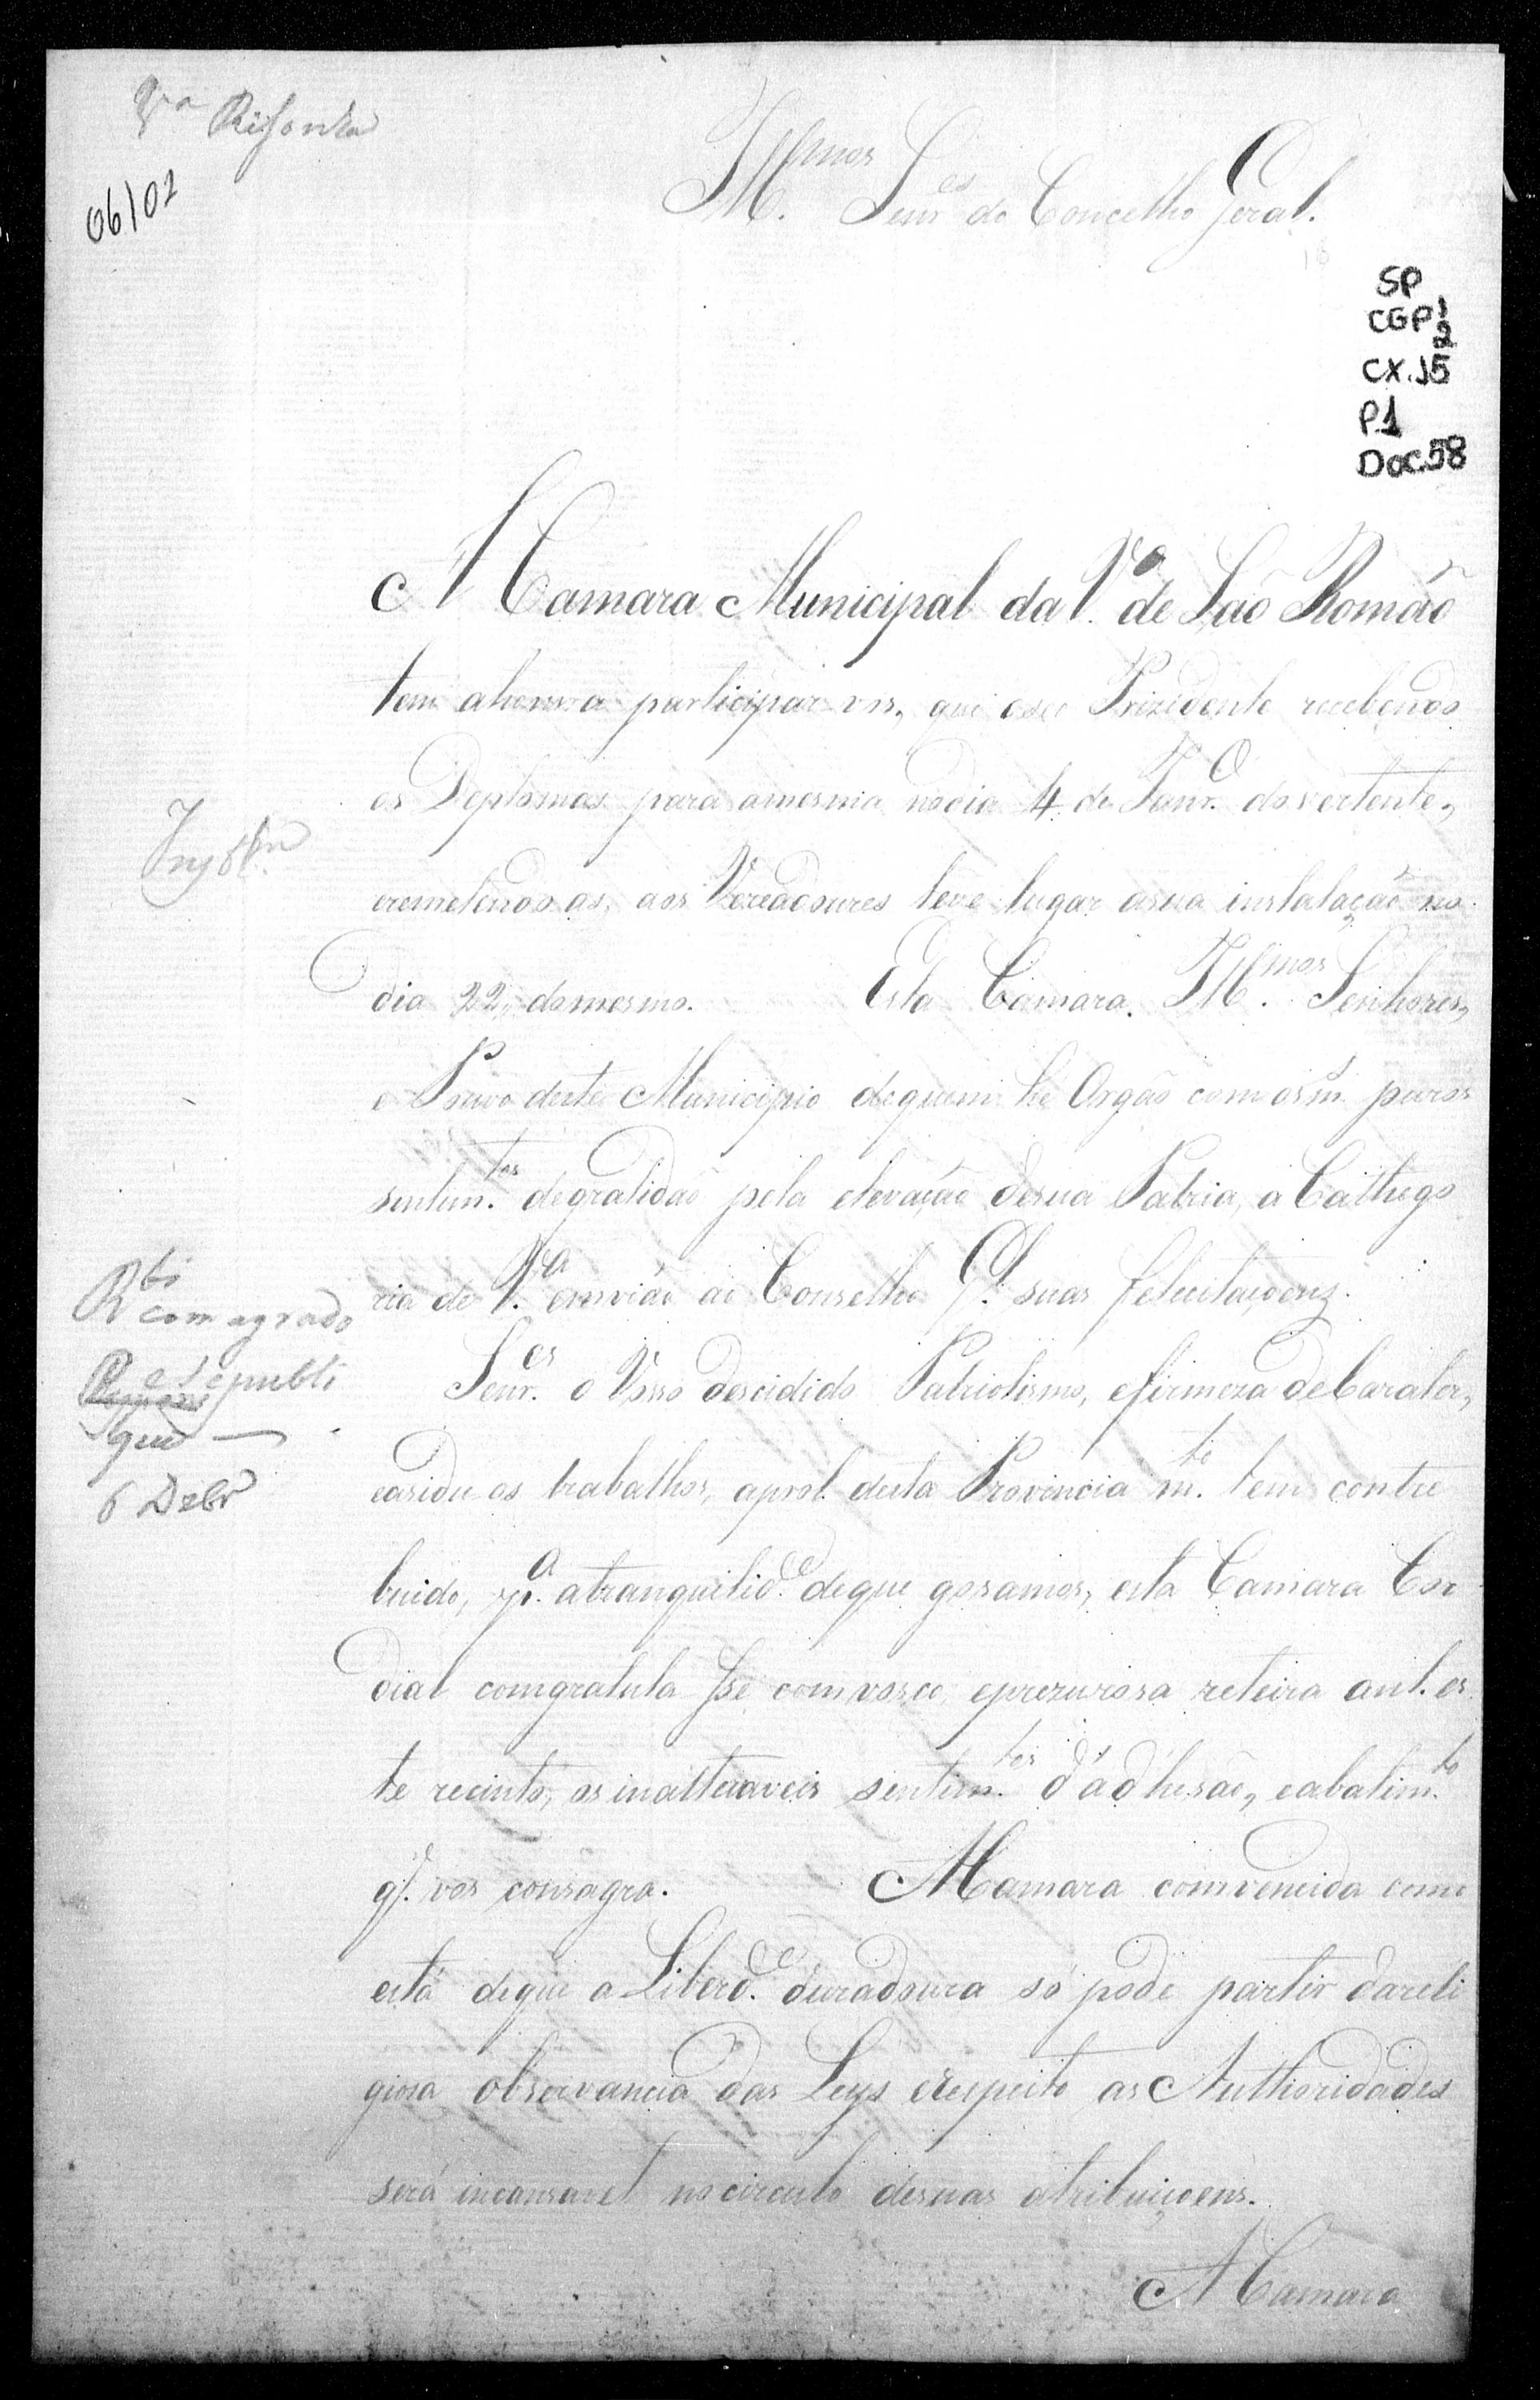 06/02
Ill.mos Senr.es do Concelho Geral.
SP
CGP1
2
CX.15
P.1
Doc.58
A Camara Municipal da V.a de São Romão
tem ahonra participar vos, que oseo Prizidente recebendo
os Deplomas para amesma nodia 4 de Janr.o dovertente,
eremetendo os, aos Vereadoures teve lugar asua instalação no
dia 22, domesmo. Esta Camara, Ill.mos Senhores,
o Pouvo deste Municipio dequem he Orgão com os m. puros
sentim.tos degratidão pela elevação desua Patria, a Cathego
ria de V.a envião ao Conselho G.l suas felicitaçoens.
Senr.es o Vosso descidido Patriotismo, efirmeza deCarater,
easiduos trabalhos, aprol desta Provincia m.to tem contre
buido, p.a atranquilid.e deque gosamos, esta Camara Cor
dial comgratula se comvosco, eprezurosa reteira ant. es
te recinto, os inalteraveis sentim.tos d'ad'hesão, eabatim.to
q. vos consagra. A Camara comvencida como
está deque a Liberd.e duradoura só pode partir dareli
giosa observancia das Leys erespeito as Authoridades
será incansavel nocirculo desuas atribuiçoens.
A Camara
R.bi
com agrado
e s' publi
que
6 Debr